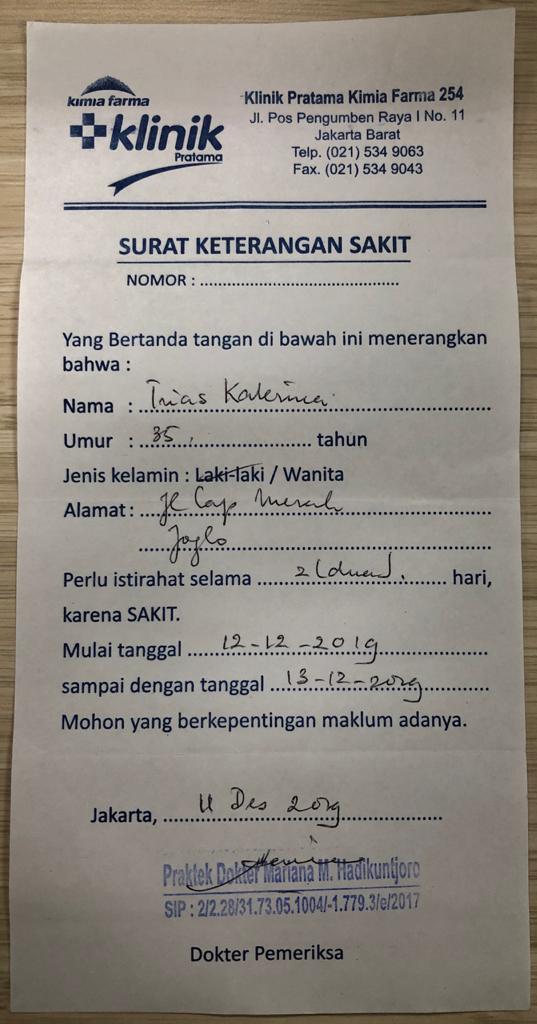 kimia farma
klinik
Pratama
Klinik Pratama Kimia Farma 254
Jl. Pos Pengumben Raya I No. 11
Jakarta Barat
Telp. (021) 534 9063
Fax. (021) 534 9043
SURAT KETERANGAN SAKIT
NOMOR : ................................................
Yang Bertanda tangan di bawah ini menerangkan
bahwa :
Nama : Trias Katerina
Umur : 35 tahun
Jenis kelamin : Laki-laki / Wanita
Alamat : Jl Cap Merah
Joglo
Perlu istirahat selama 2 (dua) hari,
karena SAKIT.
Mulai tanggal 12-12-2019
sampai dengan tanggal 13-12-2019
Mohon yang berkepentingan maklum adanya.
Jakarta, 11 Des 2019
Praktek Dokter Mariana M. Hadikuntjoro
SIP : 2/2.28/31.73.05.1004/-1.779.3/e/2017
Dokter Pemeriksa